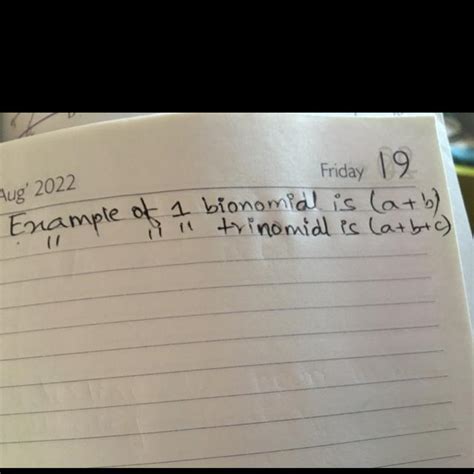 Aug' 2022
Friday 19
Example of 1 bionomial is (a+b)
" " " trinomial is (a+b+c)